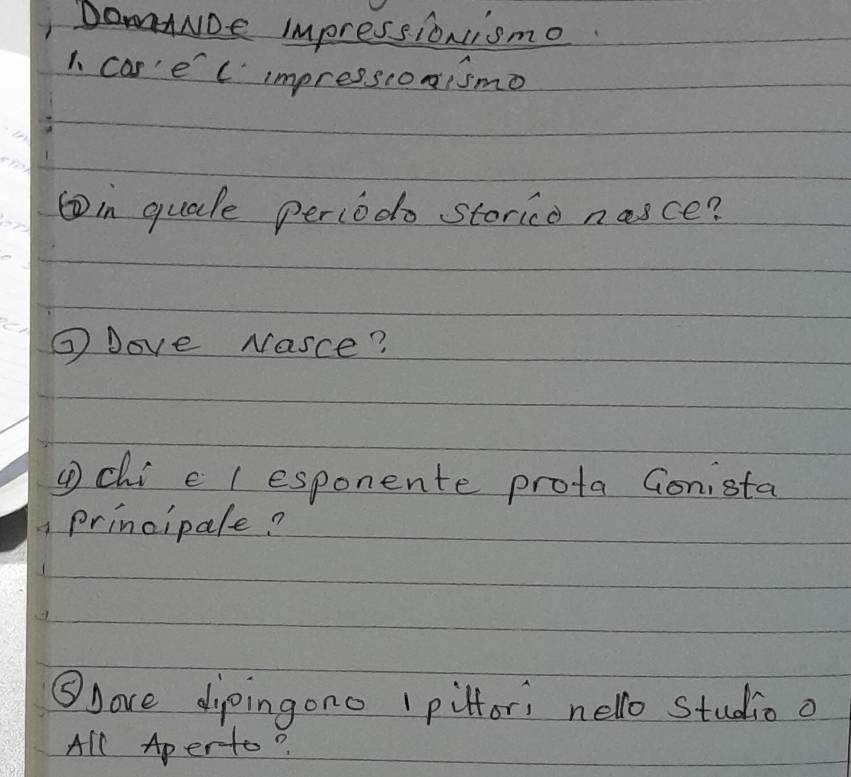 DOMANDE IMpressioNismo.
1. cos'e L'impressionismo
② in quale periodo storico nasce?
③ Dove Nasce?
④ chi e l esponente prota Gonista
principale?
⑤ Dove dipingono I pittori nello studio o
All Aperto?